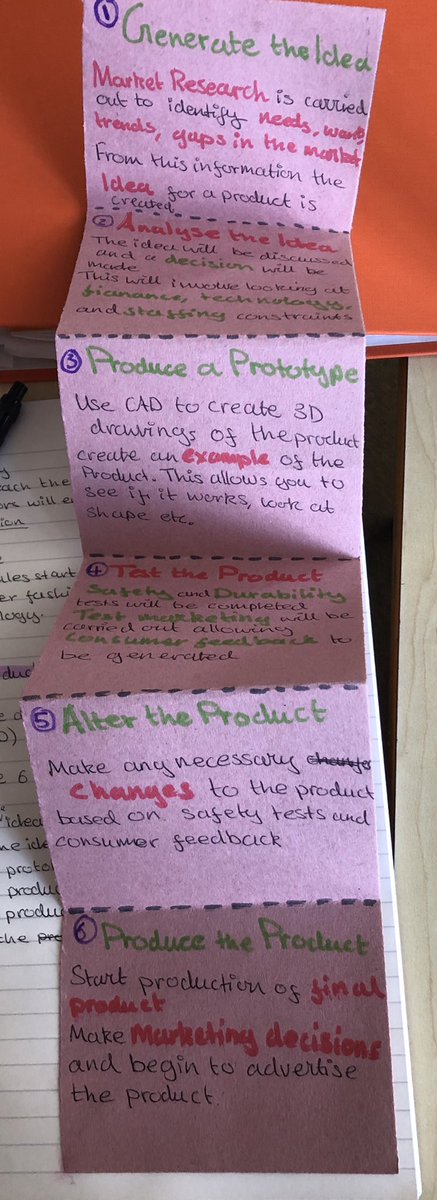 ① Generate the Idea
Market Research is carried
out to identify needs, wants,
trends, gaps in the market.
From this information the
Idea for a product is
created.
② Analyse the Idea
The idea will be discussed
and a decision will be
made
This will involve looking at
finance, technology,
and staffing constraints
③ Produce a Prototype
Use CAD to create 3D
drawings of the product
create an example of the
Product. This allows you to
see if it works, look at
shape etc.
④ Test the Product
Safety and Durability
tests will be completed
Test marketing will be
carried out allowing
consumer feedback to
be generated
⑤ Alter the Product
Make any necessary
changes to the product
based on safety tests and
consumer feedback
⑥ Produce the Product
Start production of final
product
Make Marketing decisions
and begin to advertise
the product.